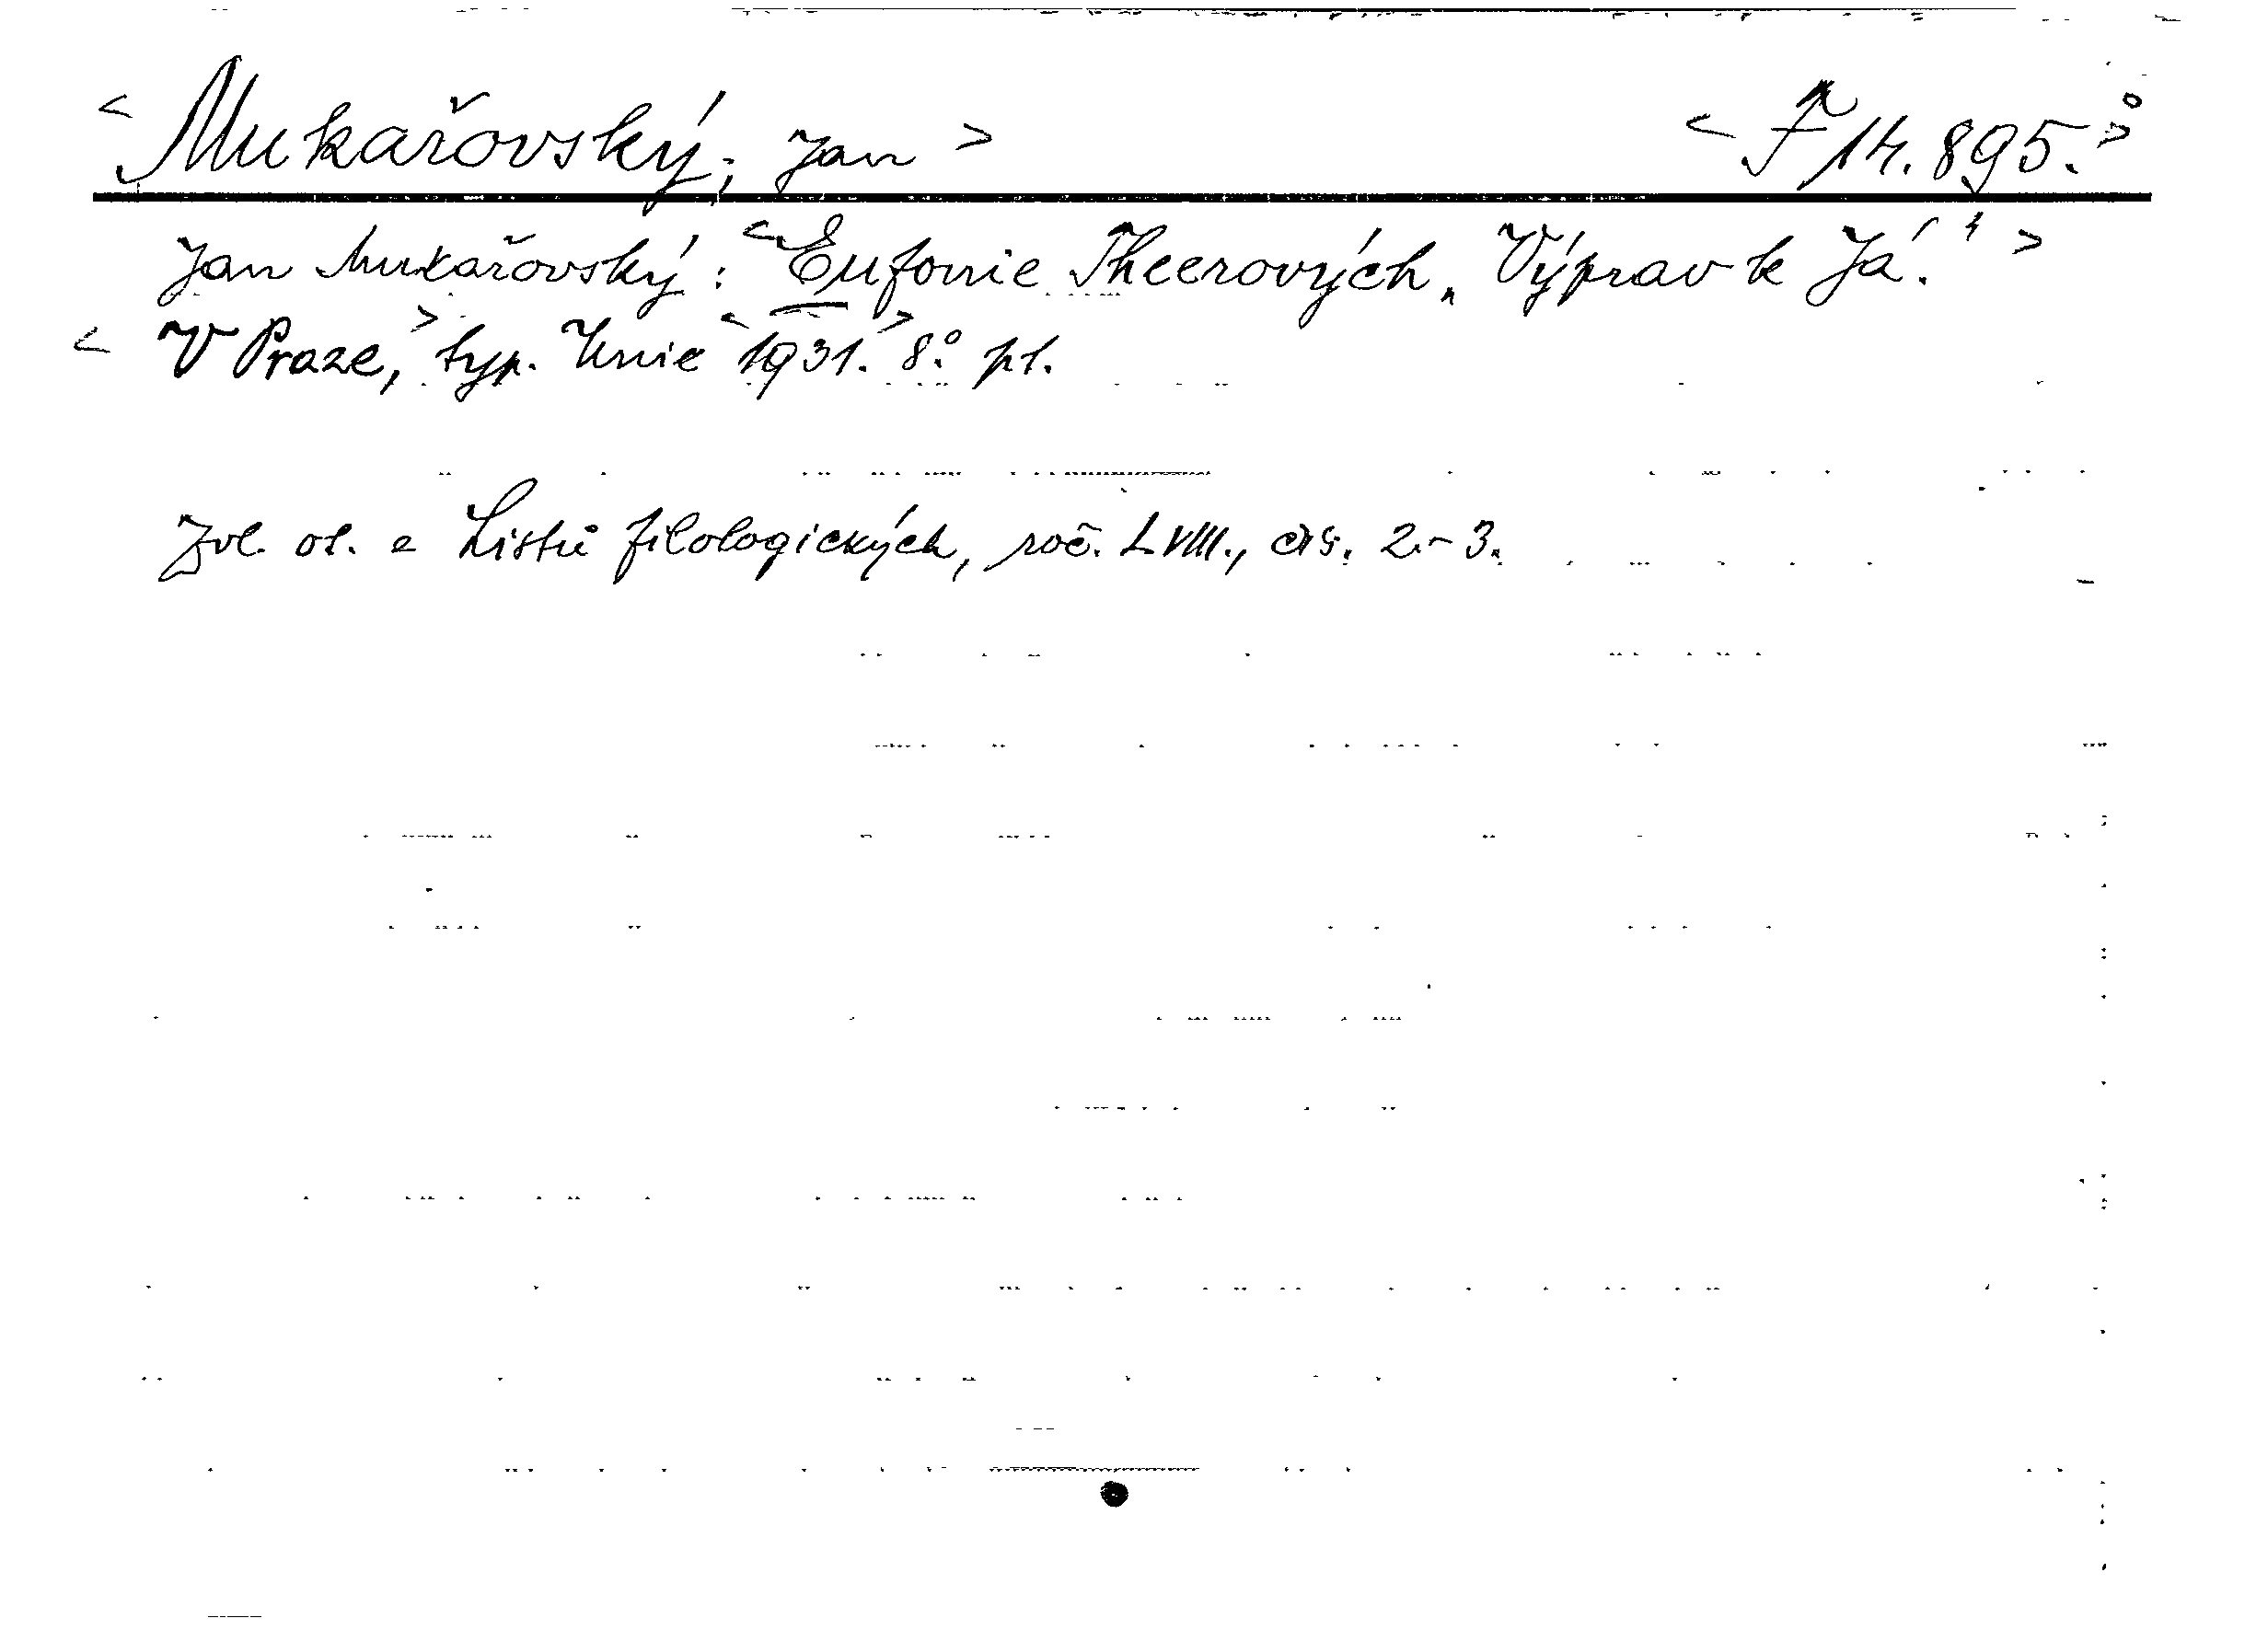 < Mukařovský, Jan > < F 14.895. >
Jan Mukařovský: < Eufonie Theerových „Výprav k Já." >
< V Praze, > typ. Unie < 1931. > 8° pt.
Zvl. ot. z Listů filologických, roč. LVIII., čís. 2.-3.